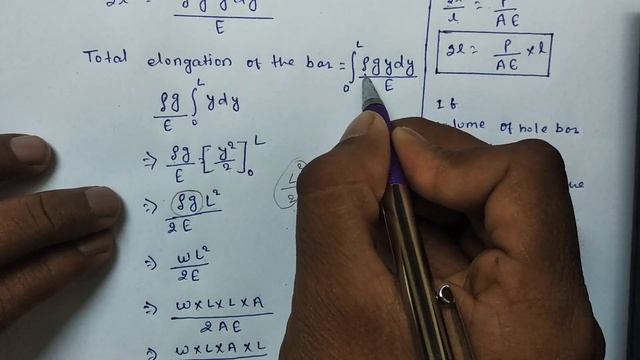 E
Total elongation of the bar = ∫₀ᴸ ρgydy/E
ρg/E ∫₀ᴸ ydy
⇒ ρg/E · [y²/2]₀ᴸ
⇒ ρgL²/2E
⇒ wL²/2E
⇒ w×L×L×A/2AE
⇒ w×L×A×L
L²/2
P/AE
∂l = P/AE × l
of hole bar